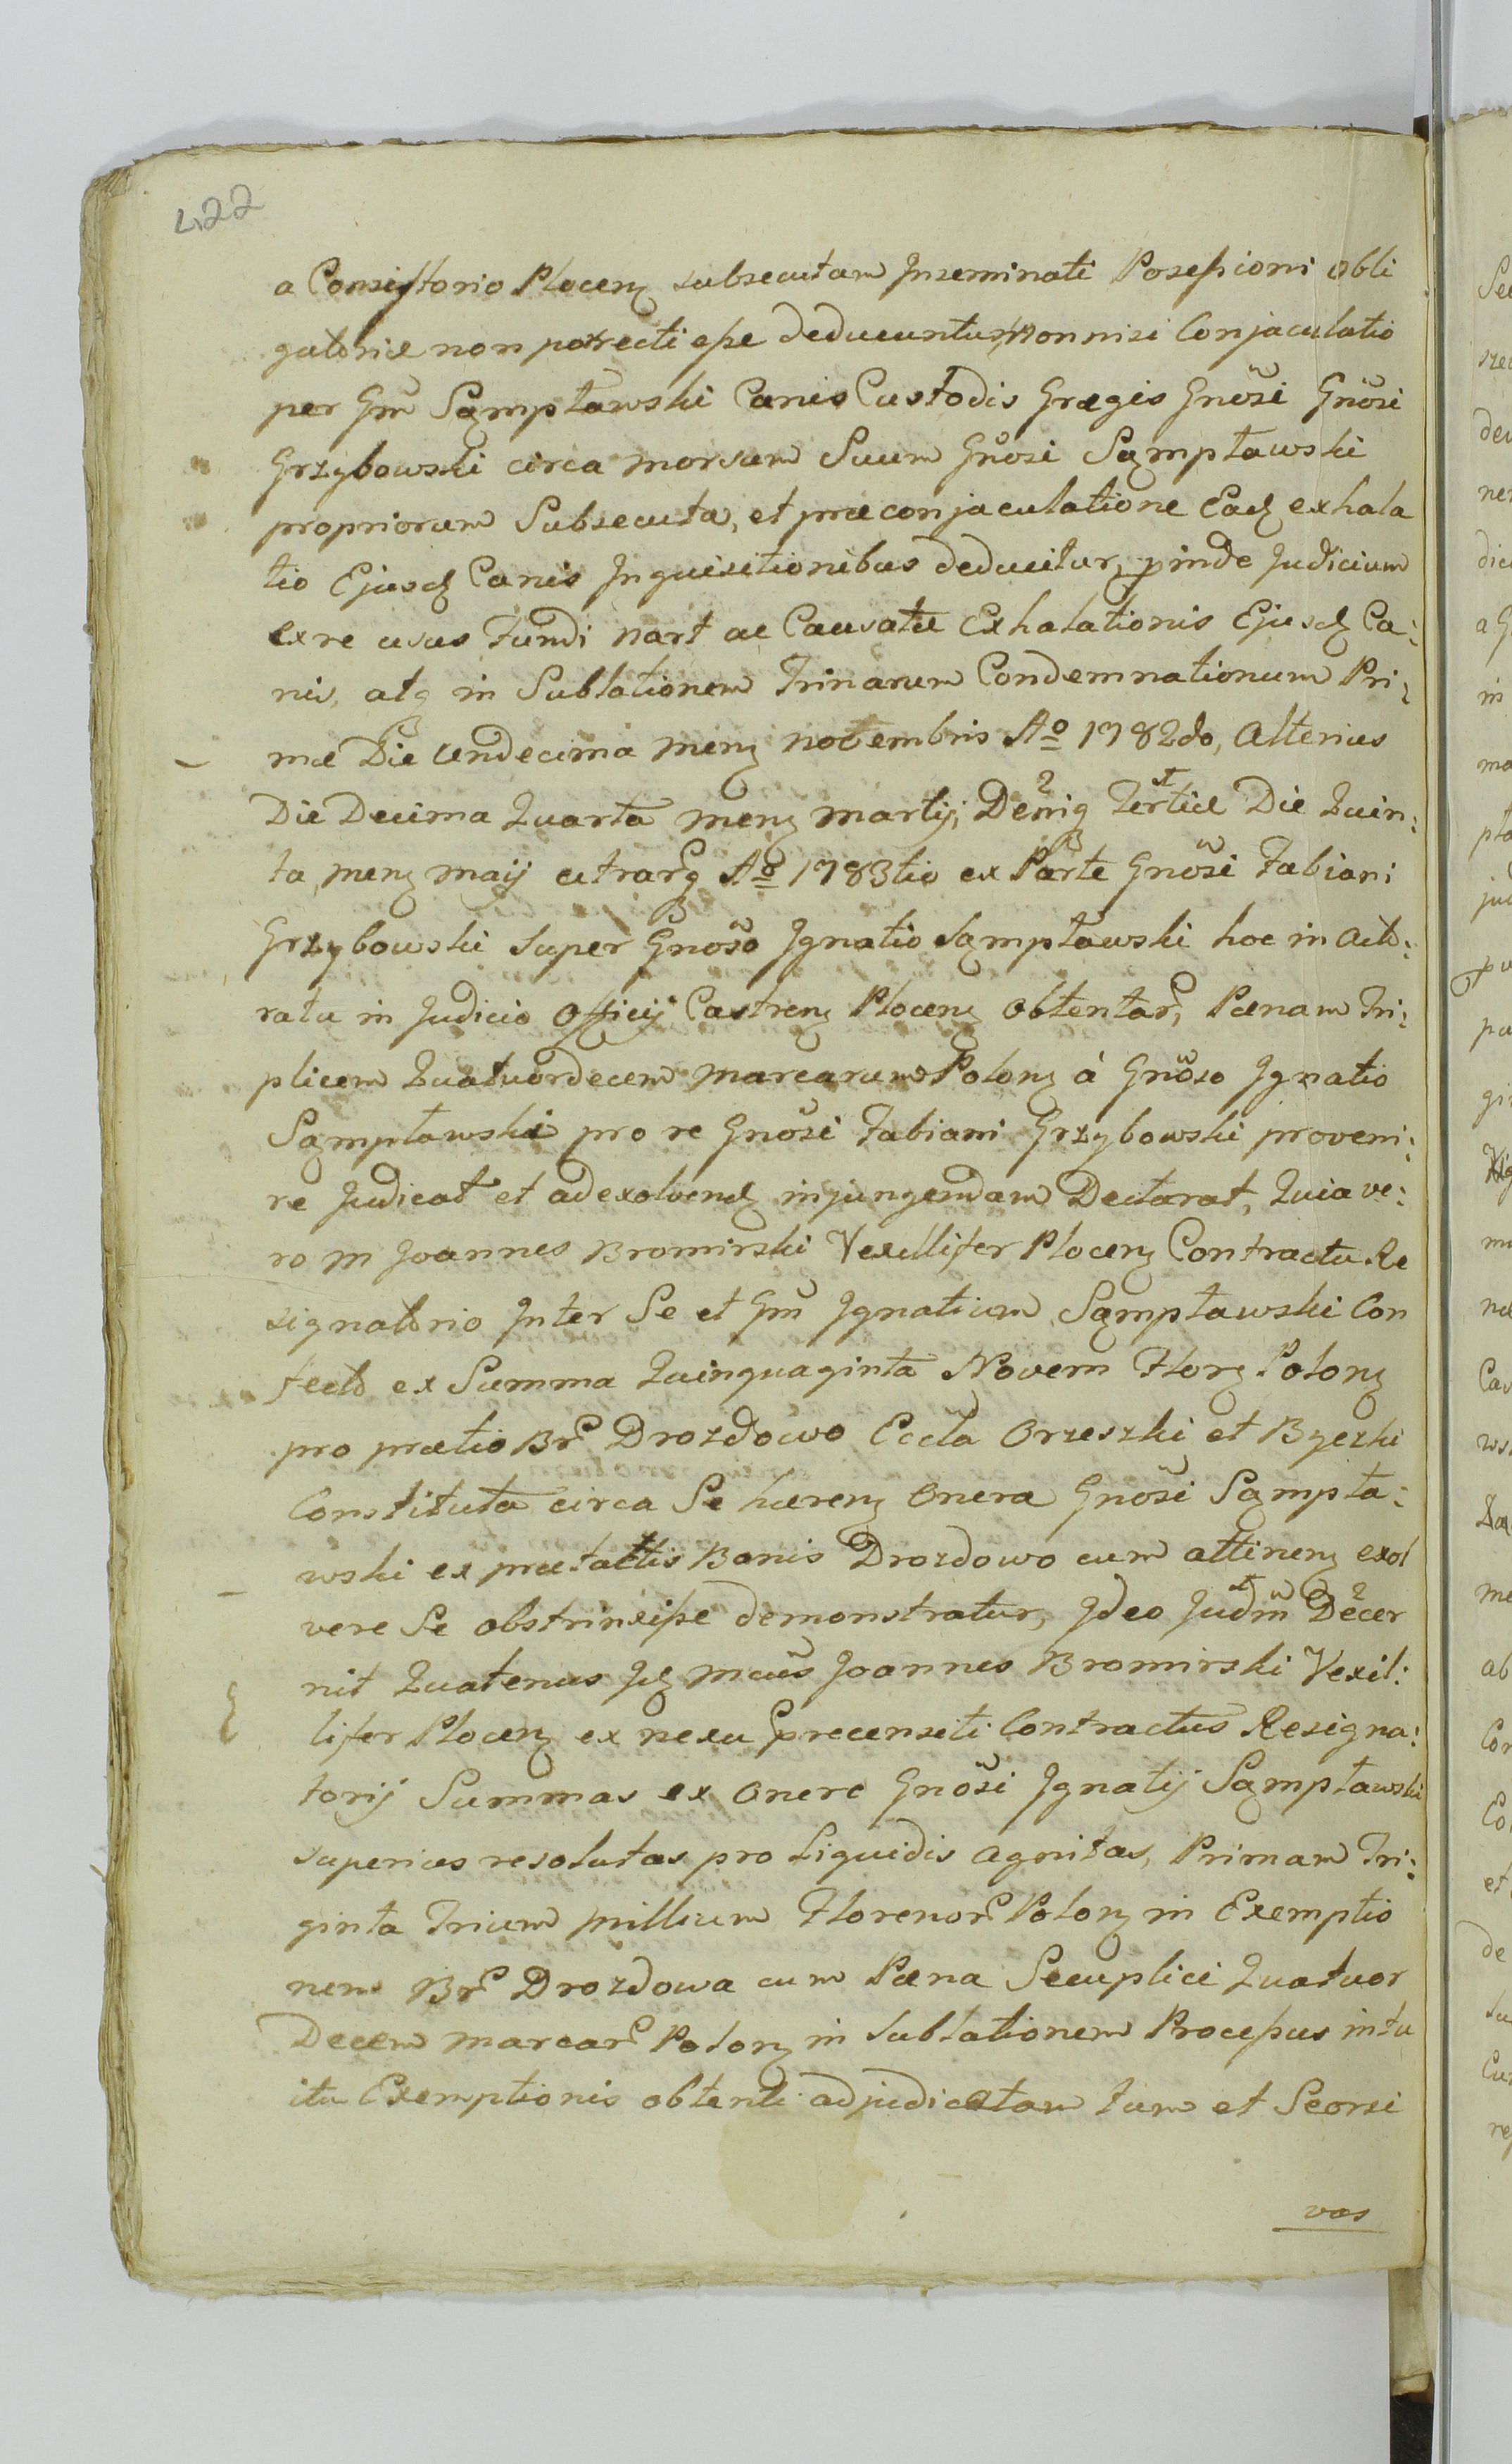 422
a Consistorio Plocenʒ subsecutam Inseminati Possessioni obli
gatoriæ non porrecti esse deducuntur, non nisi Conjaculatio
per Gm̃ Sąmpławski Canis Custodis Grægis Gnosi Gnosi
Grzybowski circa morsum Suum Gnosi Sąmpławski
propriorum Subsecuta, et præ conjaculatione Eadʒ exhala
tio Ejusdʒ Canis Inquisitionibus deducitur, pinde Judicium
ex re usus Fundi nart ac Causatæ Exhalationis Ejusdʒ Ca:
nis, atq in Sublationem Trinarum Condemnationum Pri:
mæ Die Undecima menʒ novembris Aº 1782do, Alterius
Die Decima Quarta menʒ martij, Deniq Tertiæ Die Quin:
ta, menʒ maij utrarq Aº 1783tio ex Parte Gnosi Fabiani
Grzybowski super Gnoso Ignatio Sąmpławski hoc in acto:
ratu in Judicio Officij Castrenʒ Plocenʒ obtentar, Pænam Tri:
plicem Quatuordecem marcarum Polonʒ à Gnoso Ignatio
Sąmpławski pro re Gnosi Fabiani Grzybowski proveni:
re Judicat et ad exolvendʒ injungendam Declarat, Quia ve:
ro M Joannes Bromirski Vexillifer Plocenʒ Contractu Re
signatorio Inter Se et Gm̃ Ignatium Sąmpławski Con
fecto ex Summa Quinquaginta Novem Florʒ Polonʒ
pro prætio Br Drozdowo Eccla Orzeszki et Byczki
Constituta circa Se hærenʒ Onera Gnosi Sąmpła:
wski ex prætactis Bonis Drozdowo cum attinenʒ exol
vere Se obstrinxisse demonstratur, Ideo Judm̃ Decer
nit Quatenus Idʒ Mcus Joannes Bromirski Vexil:
lifer Plocenʒ ex nexu precensiti Contractus Resigna:
torij Summas ex Onere Gnosi Ignatij Sąmpławski
superius resolutas pro Liquidis agnitas, Primam Tri:
ginta Trium millium Florenor Polonʒ in Exemptio
nem Br Drozdowa cum Pæna Secuplici Quatuor
Decem marcar Polonʒ in sublationem Processus intu
itu Exemptionis obtenti adjudicatam tum et Seorsi
vas